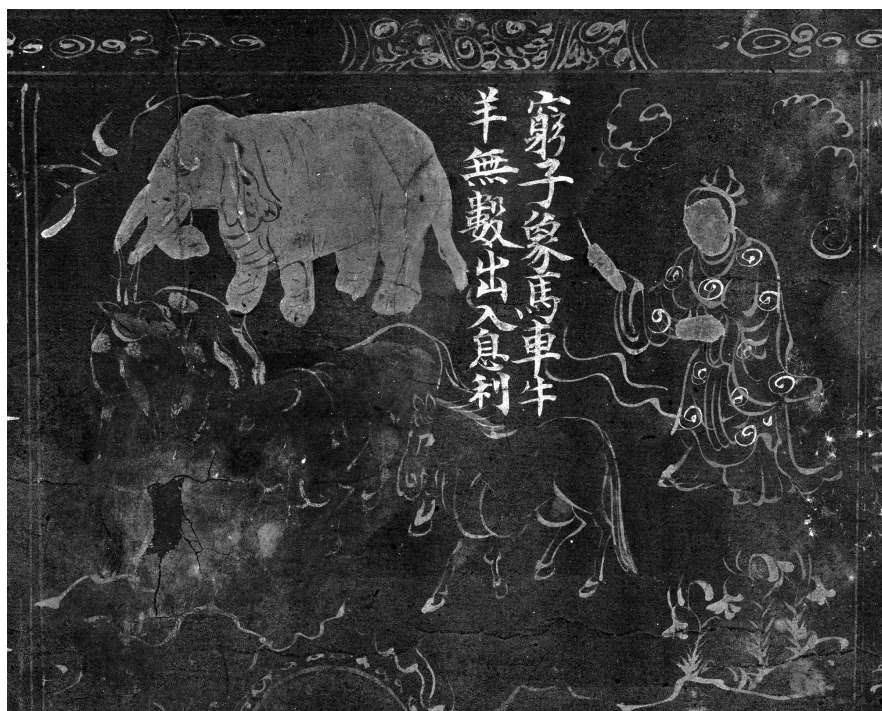 窮子象馬車牛
羊無數出入息利